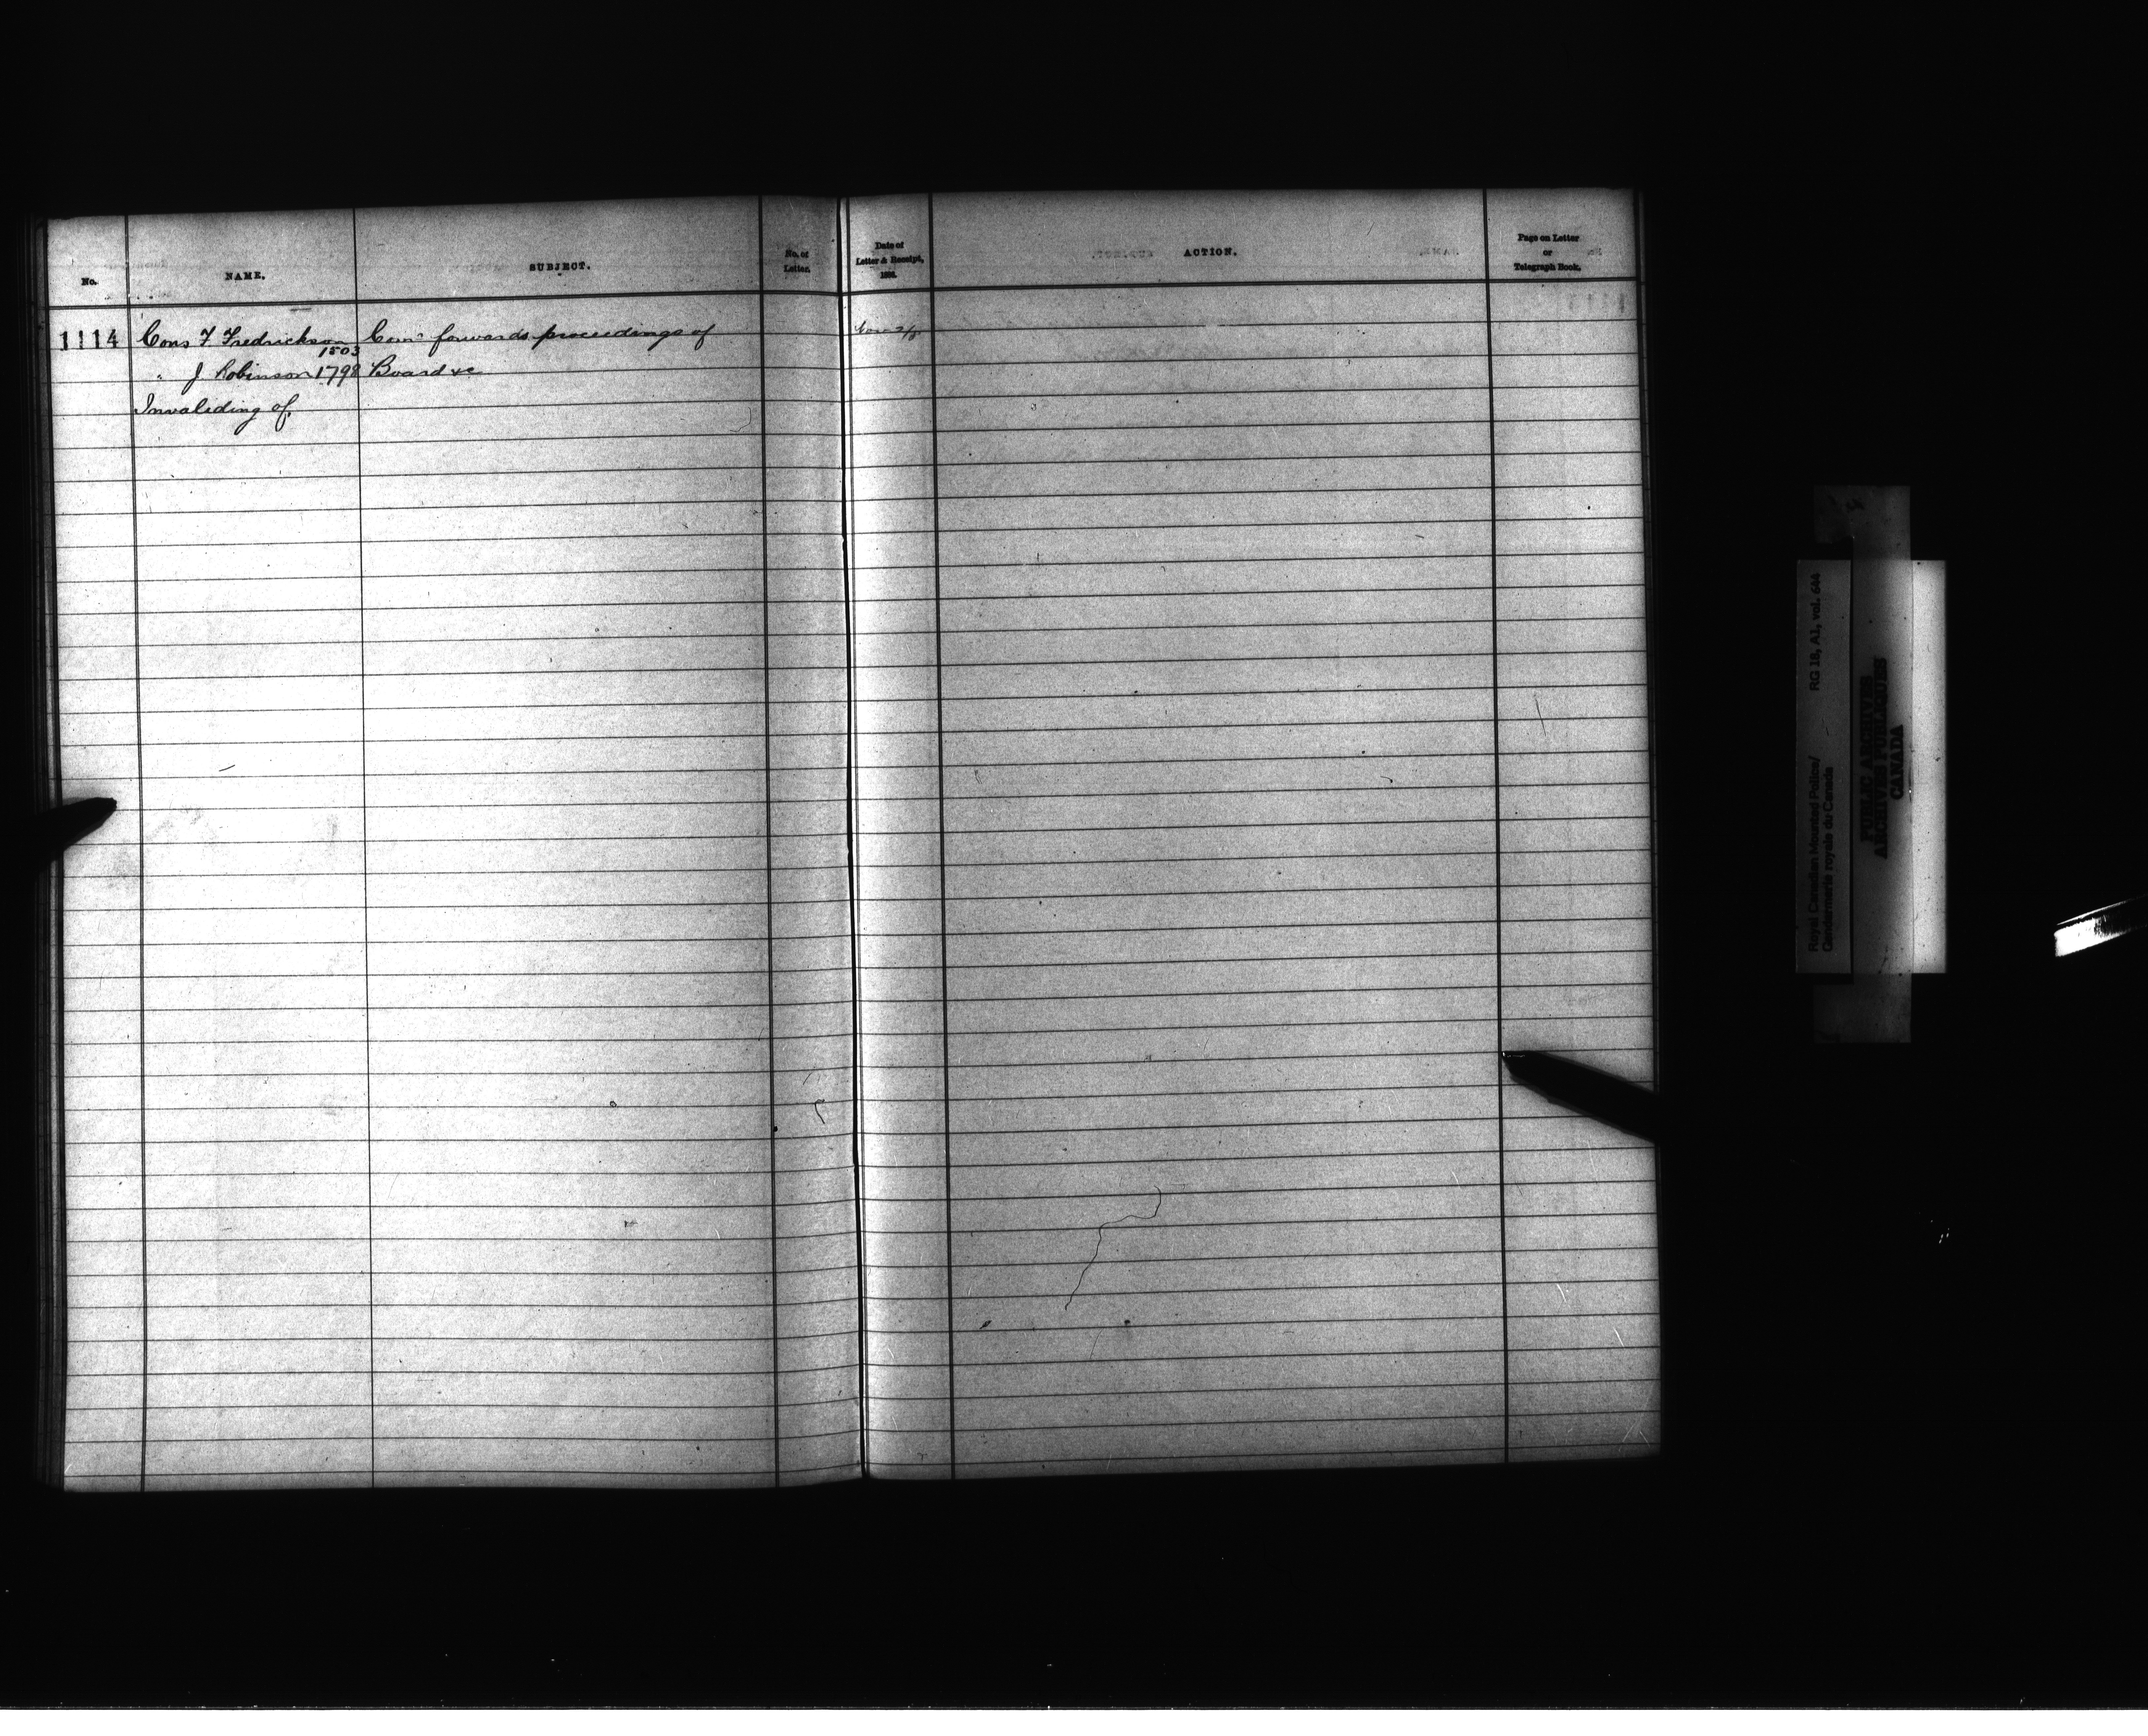 No.
NAME.
SUBJECT.
No. of
Letter.
Date of
Letter & Receipt,
ACTION.
Page on Letter
or
Telegraph Book.
1114
Cons F. Fredrickson
1503
Comr forwards proceedings of
" J. Robinson 1798
Board &c
Invaliding of.
RG 18, A1, vol. 644
Royal Canadian Mounted Police/
Gendarmerie royale du Canada
PUBLIC ARCHIVES
ARCHIVES PUBLIQUES
CANADA